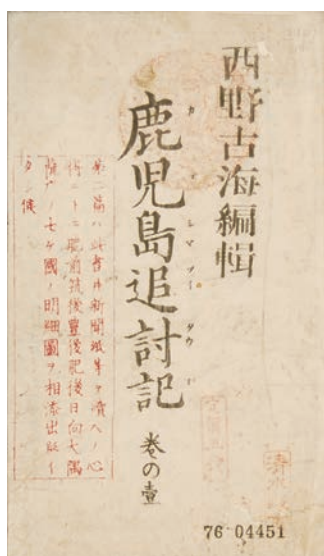 西野古海編輯
鹿児島追討記 巻の壹
カゴシマツイタウキ
第二篇ハ此書并新聞紙等ヲ讀ヘノ心
得ニト肥前筑後豊後肥後日向大隅
薩ノ七ケ國ノ明細圖ヲ相添出版イ
タシ候
76 04451